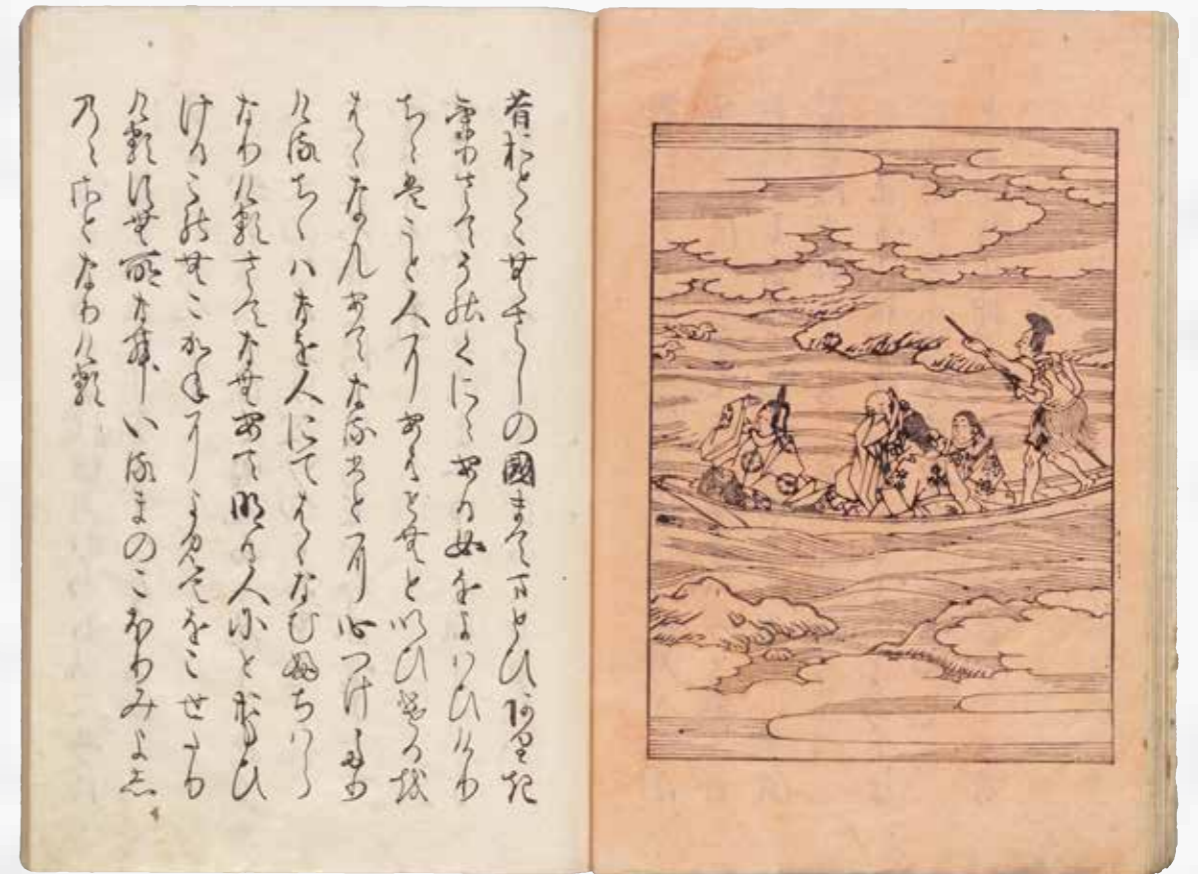 昔おとこむさしの國まてまとひありき
けりさてその くにゝある女をよはひけり
ちゝはこと人にあはせむといひけるを
はゝなんあてなるひとに心つけたり
けるちゝハなを人にてはゝなむふちハら
なりけるさてなむあてなる人にとおもひ
けるこのむこかねによみてをこせたり
けるすむ所なむいるまのこほりみよし
のゝさとなりける